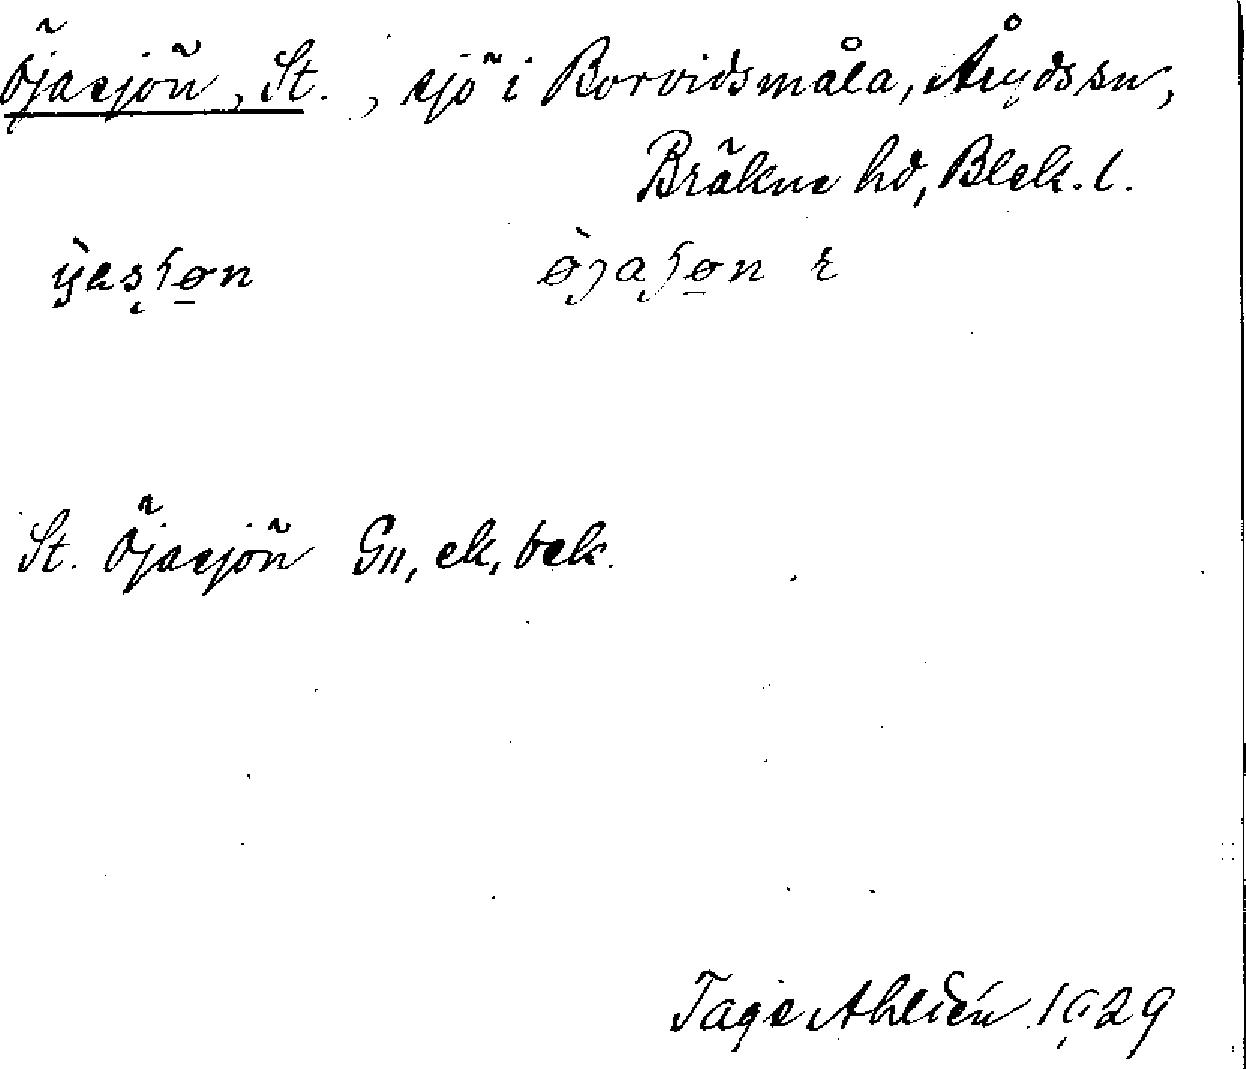 Öjasjön, St., sjö i Borvidsmåla, Åryds sn,
Bräkne hd, Blek. l.
öjaʂɧøn r
St. Öjasjön G11, ek, bek.
Tage Ahldén 1929